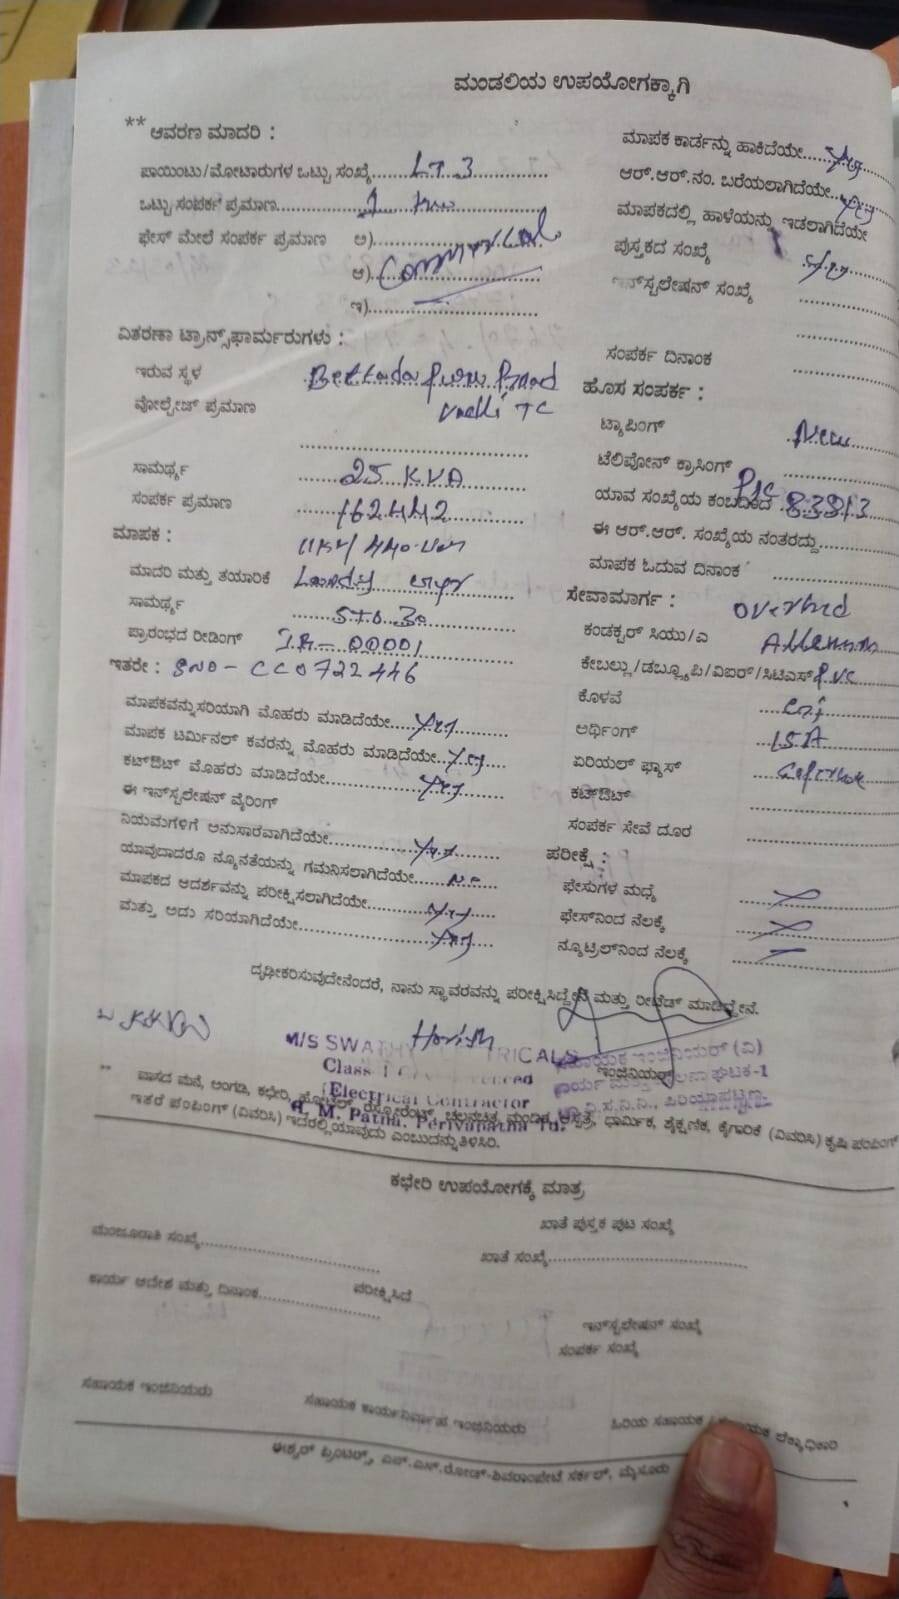 ಮಂಡಲಿಯ ಉಪಯೋಗಕ್ಕಾಗಿ
** ಆವರಣ ಮಾದರಿ :
ಪಾಯಿಂಟು/ಮೋಟಾರುಗಳ ಒಟ್ಟು ಸಂಖ್ಯೆ LT 3
ಒಟ್ಟು ಸಂಪರ್ಕ ಪ್ರಮಾಣ 1 kw
ಫೇಸ್ ಮೇಲೆ ಸಂಪರ್ಕ ಪ್ರಮಾಣ ಅ)
ಆ) Commercial
ಇ)
ವಿತರಣಾ ಟ್ರಾನ್ಸ್‌ಫಾರ್ಮರುಗಳು :
ಇರುವ ಸ್ಥಳ Bettadapura Road
ವೋಲ್ಟೇಜ್ ಪ್ರಮಾಣ TC
ಸಾಮರ್ಥ್ಯ 25 KVA
ಸಂಪರ್ಕ ಪ್ರಮಾಣ 162442
ಮಾಪಕ :
ಮಾದರಿ ಮತ್ತು ತಯಾರಿಕೆ
ಸಾಮರ್ಥ್ಯ 5 TO 30
ಪ್ರಾರಂಭದ ರೀಡಿಂಗ್ IR - 00001
ಇತರೇ : SNO - CC0722446
ಮಾಪಕವನ್ನುಸರಿಯಾಗಿ ಮೊಹರು ಮಾಡಿದೆಯೇ Yes
ಮಾಪಕ ಟರ್ಮಿನಲ್ ಕವರನ್ನು ಮೊಹರು ಮಾಡಿದೆಯೇ Yes
ಕಟ್‌ಔಟ್ ಮೊಹರು ಮಾಡಿದೆಯೇ Yes
ಈ ಇನ್‌ಸ್ಟಲೇಷನ್ ವೈರಿಂಗ್
ನಿಯಮಗಳಿಗೆ ಅನುಸಾರವಾಗಿದೆಯೇ Yes
ಯಾವುದಾದರೂ ನ್ಯೂನತೆಯನ್ನು ಗಮನಿಸಲಾಗಿದೆಯೇ No
ಮಾಪಕದ ಆದರ್ಶವನ್ನು ಪರೀಕ್ಷಿಸಲಾಗಿದೆಯೇ Yes
ಮತ್ತು ಅದು ಸರಿಯಾಗಿದೆಯೇ Yes
ಮಾಪಕ ಕಾರ್ಡನ್ನು ಹಾಕಿದೆಯೇ Yes
ಆರ್.ಆರ್.ನಂ. ಬರೆಯಲಾಗಿದೆಯೇ Yes
ಮಾಪಕದಲ್ಲಿ ಹಾಳೆಯನ್ನು ಇಡಲಾಗಿದೆಯೇ
ಪುಸ್ತಕದ ಸಂಖ್ಯೆ
ಇನ್‌ಸ್ಟಲೇಷನ್ ಸಂಖ್ಯೆ
ಸಂಪರ್ಕ ದಿನಾಂಕ
ಹೊಸ ಸಂಪರ್ಕ :
ಟ್ಯಾಪಿಂಗ್ New
ಟೆಲಿಪೋನ್ ಕ್ರಾಸಿಂಗ್
ಯಾವ ಸಂಖ್ಯೆಯ ಕಂಬದಿಂದ 83813
ಈ ಆರ್.ಆರ್. ಸಂಖ್ಯೆಯ ನಂತರದ್ದು
ಮಾಪಕ ಓದುವ ದಿನಾಂಕ
ಸೇವಾಮಾರ್ಗ : overhed
ಕಂಡಕ್ಟರ್ ಸಿಯು/ಎ
ಕೇಬಲ್ಲು/ಡಬ್ಲ್ಯೂಪಿ/ವಿಐಆರ್/ಸಿಟಿಎಸ್ PVC
ಕೊಳವೆ
ಅರ್ಥಿಂಗ್
ಏರಿಯಲ್ ಫ್ಯೂಸ್
ಕಟ್‌ಔಟ್
ಸಂಪರ್ಕ ಸೇವೆ ದೂರ
ಪರೀಕ್ಷೆ :
ಫೇಸುಗಳ ಮಧ್ಯೆ
ಫೇಸ್‌ನಿಂದ ನೆಲಕ್ಕೆ
ನ್ಯೂಟ್ರಲ್‌ನಿಂದ ನೆಲಕ್ಕೆ
ದೃಢೀಕರಿಸುವುದೇನೆಂದರೆ, ನಾನು ಸ್ಥಾವರವನ್ನು ಪರೀಕ್ಷಿಸಿದ್ದೇನೆ ಮತ್ತು ರೀಚೆಡ್ ಮಾಡಿದ್ದೇನೆ.
Harish
M/S SWATHY TRICALS
Class 1
Electrical Contractor
ಸಹಾಯಕ ಇಂಜಿನಿಯರ್ (ವಿ)
ಇಂಜಿನಿಯರ್
** ವಾಸದ ಮನೆ, ಅಂಗಡಿ, ಕಛೇರಿ, ಹೋಟೆಲ್, ರೆಸ್ಟೋರೆಂಟ್, ಚಲನಚಿತ್ರ ಮಂದಿರ, ಆಸ್ಪತ್ರೆ, ಧಾರ್ಮಿಕ, ಶೈಕ್ಷಣಿಕ, ಕೈಗಾರಿಕೆ (ವಿವರಿಸಿ) ಕೃಷಿ ಪಂಪಿಂಗ್
ಇತರೆ ಪಂಪಿಂಗ್ (ವಿವರಿಸಿ) ಇದರಲ್ಲಿಯಾವುದು ಎಂಬುದನ್ನು ತಿಳಿಸಿರಿ.
ಕಛೇರಿ ಉಪಯೋಗಕ್ಕೆ ಮಾತ್ರ
ಖಾತೆ ಪುಸ್ತಕ ಪುಟ ಸಂಖ್ಯೆ
ಮಂಜೂರಾತಿ ಸಂಖ್ಯೆ
ಖಾತೆ ಸಂಖ್ಯೆ
ಕಾರ್ಯ ಆದೇಶ ಮತ್ತು ದಿನಾಂಕ
ಪರೀಕ್ಷಿಸಿದೆ
ಇನ್‌ಸ್ಟಲೇಷನ್ ಸಂಖ್ಯೆ
ಸಂಪರ್ಕ ಸಂಖ್ಯೆ
ಸಹಾಯಕ ಇಂಜಿನಿಯರು
ಸಹಾಯಕ ಕಾರ್ಯನಿರ್ವಾಹಕ ಇಂಜಿನಿಯರು
ಹಿರಿಯ ಸಹಾಯಕ / ಲೆಕ್ಕಾಧಿಕಾರಿ
ಈಶ್ವರ್ ಪ್ರಿಂಟರ್ಸ್, ಎನ್.ಎಸ್.ರೋಡ್-ಶಿವರಾಂಪೇಟೆ ಸರ್ಕಲ್, ಮೈಸೂರು